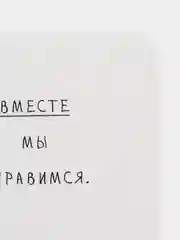 ВМЕСТЕ
МЫ
РАВИМСЯ.